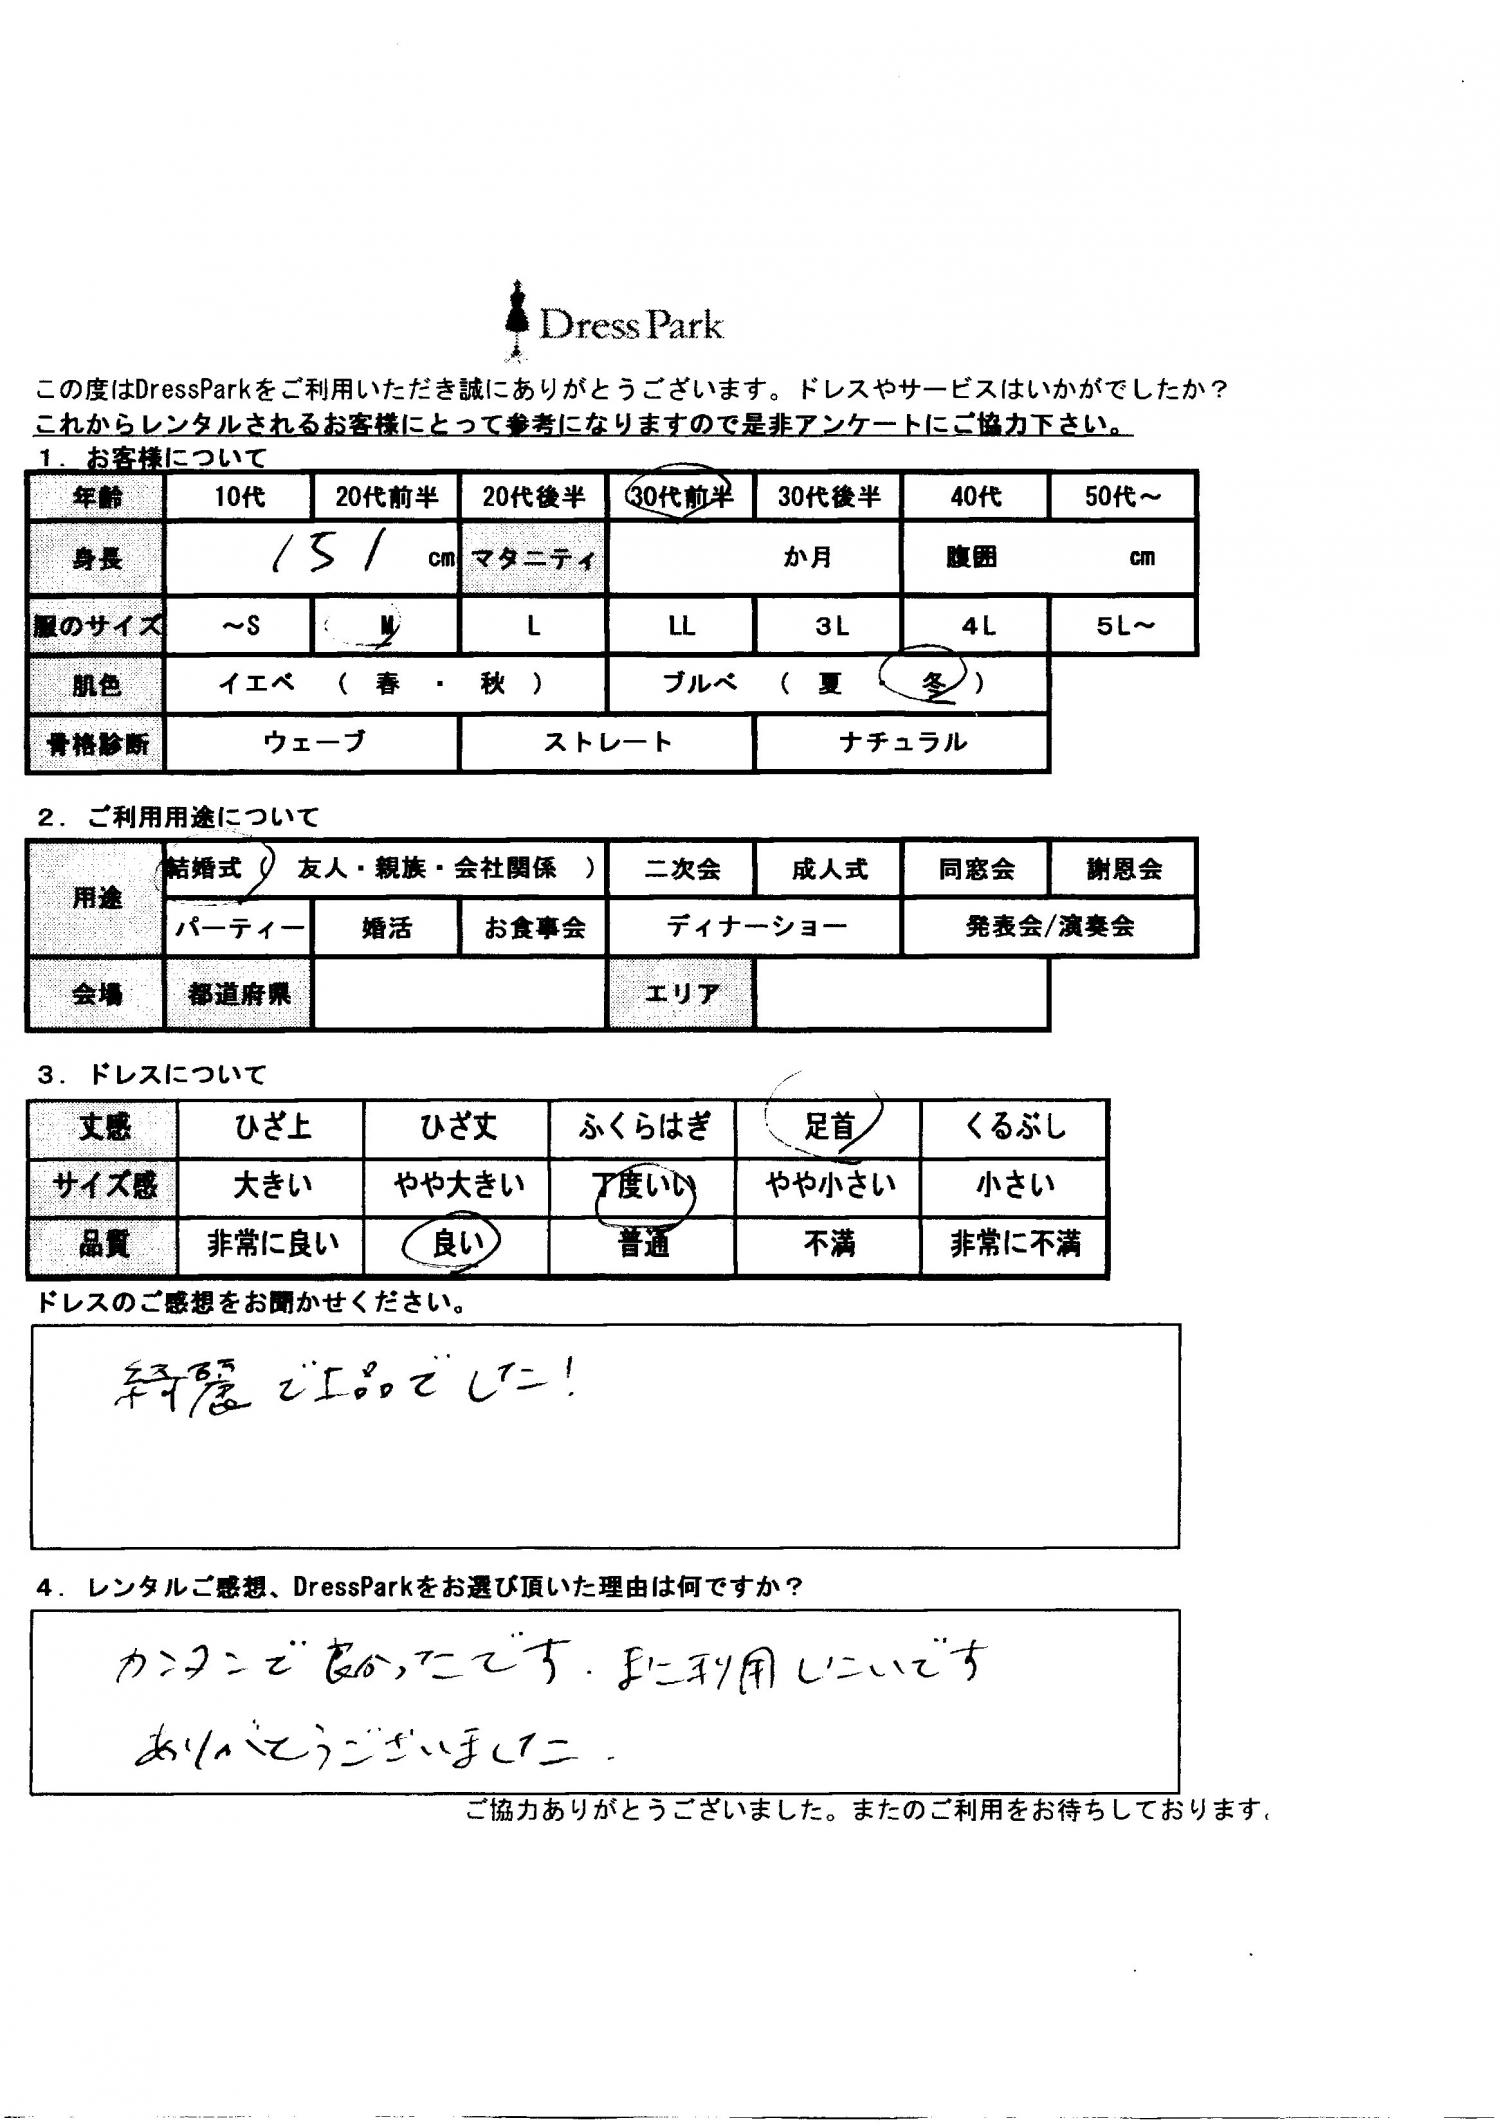 DressPark
この度はDressParkをご利用いただき誠にありがとうございます。ドレスやサービスはいかがでしたか？
これからレンタルされるお客様にとって参考になりますので是非アンケートにご協力下さい。
１．お客様について
年齢 10代 20代前半 20代後半 30代前半 30代後半 40代 50代～
身長 151 cm マタニティ か月 腹囲 cm
服のサイズ ～S M L LL 3L 4L 5L～
肌色 イエベ （ 春 ・ 秋 ） ブルベ （ 夏 ・ 冬 ）
骨格診断 ウェーブ ストレート ナチュラル
２．ご利用用途について
用途 結婚式（ 友人・親族・会社関係 ） 二次会 成人式 同窓会 謝恩会
パーティー 婚活 お食事会 ディナーショー 発表会/演奏会
会場 都道府県 エリア
３．ドレスについて
丈感 ひざ上 ひざ丈 ふくらはぎ 足首 くるぶし
サイズ感 大きい やや大きい 丁度いい やや小さい 小さい
品質 非常に良い 良い 普通 不満 非常に不満
ドレスのご感想をお聞かせください。
綺麗で上品でした！
４．レンタルご感想、DressParkをお選び頂いた理由は何ですか？
カンタンで良かったです．また利用したいです
ありがとうございました．
ご協力ありがとうございました。またのご利用をお待ちしております。